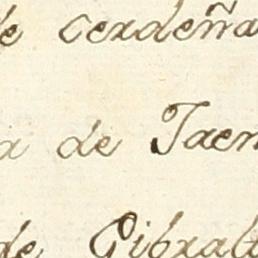 de cerdeña
a de Jaen
de Gibralt